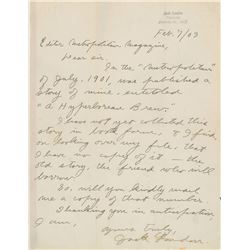 Jack London
Feb. 7/03
Editor Metropolitan Magazine,
Dear sir:
In the "Metropolitan"
of July, 1901, was published a
story of mine, entitled
"A Hyperborean Brew."
I have not yet collected this
story in book form, & I find,
on looking over my file, that
I have no copy of it – the
old story, the friend who will
borrow.
So, will you kindly mail
me a copy of that number
Thanking you in anticipation,
I am,
Yours truly,
Jack London